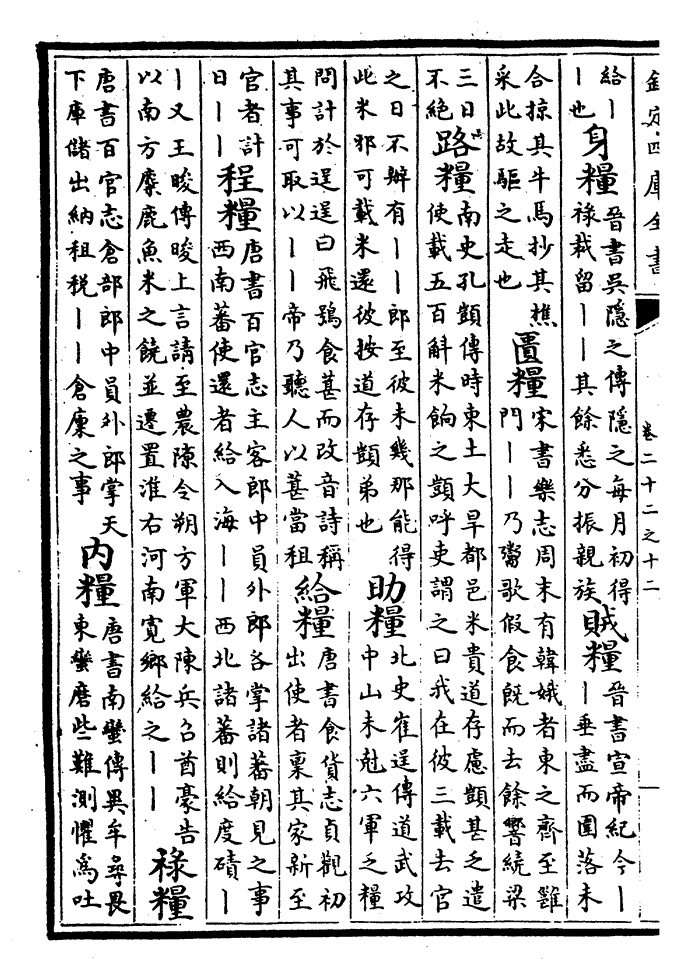 欽定四庫全書 卷二十二之十二
給丨
丨也
身糧
晉書吳隱之傳隱之每月初得
祿裁留丨丨其餘悉分振親族
賊糧
晉書宣帝紀今丨
丨垂盡而圍落未
合掠其牛馬抄其樵
采此故驅之走也
匱糧
宋書樂志周末有韓娥者東之齊至雝
門丨丨乃鬻歌假食既而去餘響繞梁
三日
不絶
路糧
南史孔顗傳時東土大旱都邑米貴道存慮顗甚乏遣
使載五百斛米餉之顗呼吏謂之曰我在彼三載去官
之日不辦有丨丨郎至彼未幾那能得
此米邪可載米還彼按道存顗弟也
助糧
北史崔逞傳道武攻
中山未尅六軍乏糧
問計於逞逞曰飛鴞食葚而改音詩稱
其事可取以丨丨帝乃聽人以葚當租
給糧
唐書食貨志貞觀初
出使者稟其家新至
官者計
日丨丨
程糧
唐書百官志主客郎中員外郎各掌諸蕃朝見之事
西南蕃使還者給入海丨丨西北諸蕃則給度磧丨
丨又王晙傳晙上言請至農隙令朔方軍大陳兵召酋豪告
以南方麋鹿魚米之饒並遷置淮右河南寛鄉給之丨丨
祿糧
唐書百官志倉部郎中員外郎掌天
下庫儲出納租税丨丨倉廩之事
内糧
唐書南蠻傳異牟尋畏
東蠻磨些難測懼爲吐